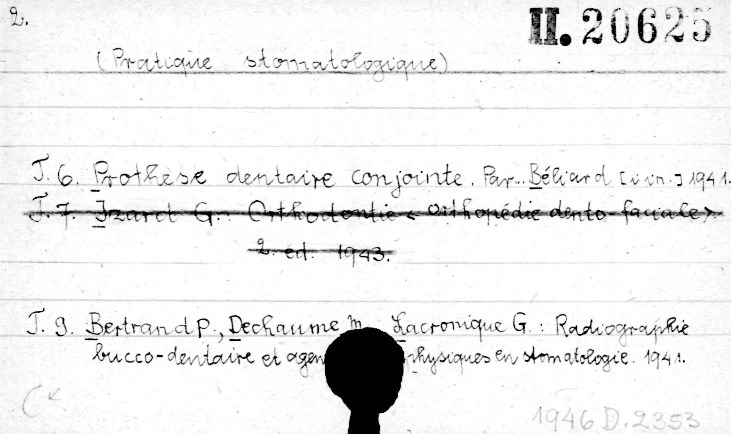 2.
II. 20625
(Pratique stomatologique)
T. 6. Prothèse dentaire conjointe. Par.. Béliard [i in.] 1941.
T. 7. Izard G.: Orthodontie < orthopédie dento-faciale >.
2. éd. 1943.
T. 9. Bertrand P., Dechaume M., Lacronique G.: Radiographie
bucco-dentaire et agen physiques en stomatologie. 1941.
1946 D. 2353